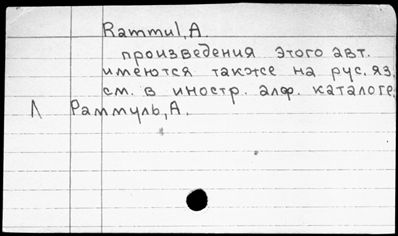 Rammul, A.
произведения этого авт.
имеются также на рус. яз.
см. в иностр. алф. каталоге.
Л Раммуль, А.